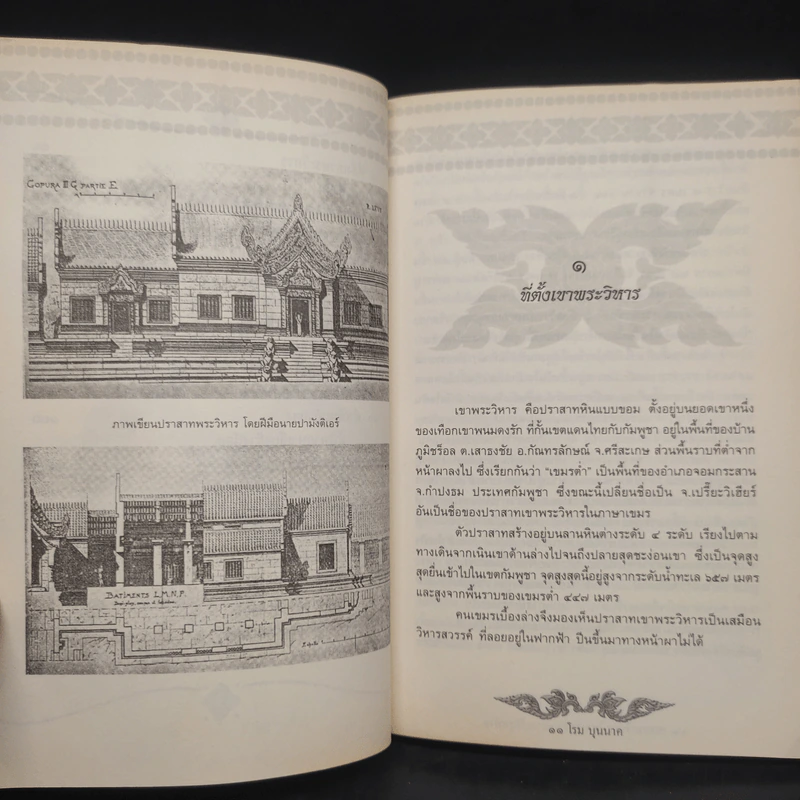 GOPURA III G PARTIE E
ภาพเขียนปราสาทพระวิหาร โดยฝีมือนายปามังติเอร์
BATIMENTS L.M.N.P.
๑
ที่ตั้งเขาพระวิหาร
เขาพระวิหาร คือปราสาทหินแบบขอม ตั้งอยู่บนยอดเขาหนึ่ง
ของเทือกเขาพนมดงรัก ที่กั้นเขตแดนไทยกับกัมพูชา อยู่ในพื้นที่ของบ้าน
ภูมิซร็อล ต.เสาธงชัย อ.กัณทรลักษณ์ จ.ศรีสะเกษ ส่วนพื้นราบที่ต่ำจาก
หน้าผาลงไป ซึ่งเรียกกันว่า “เขมรต่ำ” เป็นพื้นที่ของอำเภอจอมกระสาน
จ.กำปงธม ประเทศกัมพูชา ซึ่งขณะนี้เปลี่ยนชื่อเป็น จ.เปรี๊ยะวิเฮียร์
อันเป็นชื่อของปราสาทเขาพระวิหารในภาษาเขมร
ตัวปราสาทสร้างอยู่บนลานหินต่างระดับ ๔ ระดับ เรียงไปตาม
ทางเดินจากเนินเขาด้านล่างไปจนถึงปลายสุดชะง่อนเขา ซึ่งเป็นจุดสูง
สุดยื่นเข้าไปในเขตกัมพูชา จุดสูงสุดนี้อยู่สูงจากระดับน้ำทะเล ๖๕๗ เมตร
และสูงจากพื้นราบของเขมรต่ำ ๔๔๗ เมตร
คนเขมรเบื้องล่างจึงมองเห็นปราสาทเขาพระวิหารเป็นเสมือน
วิหารสวรรค์ ที่ลอยอยู่ในฟากฟ้า ปีนขึ้นมาทางหน้าผาไม่ได้
๑๑ โรม บุนนาค